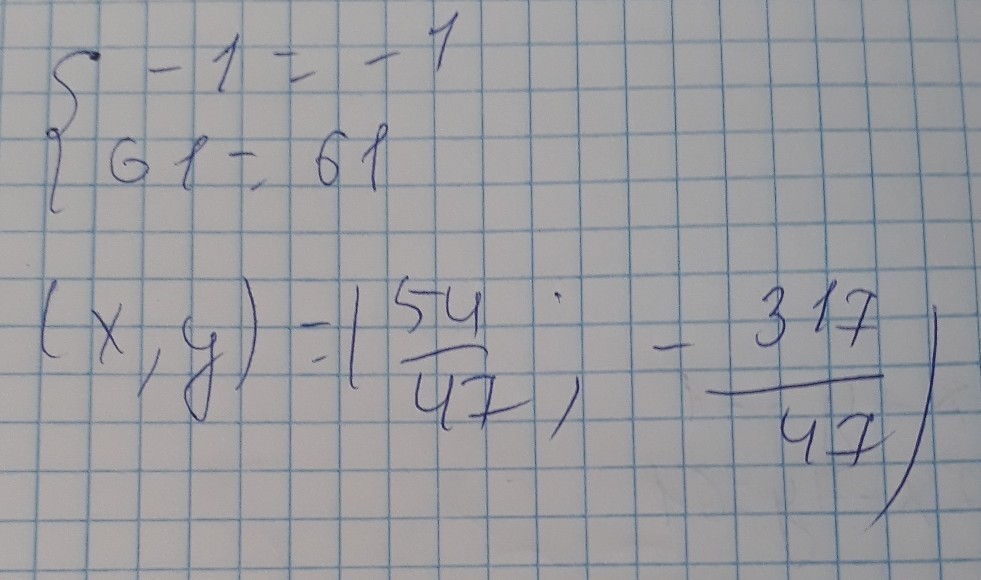 { -1 = -1
61 = 61
(x, y) = (54/47, -317/47)